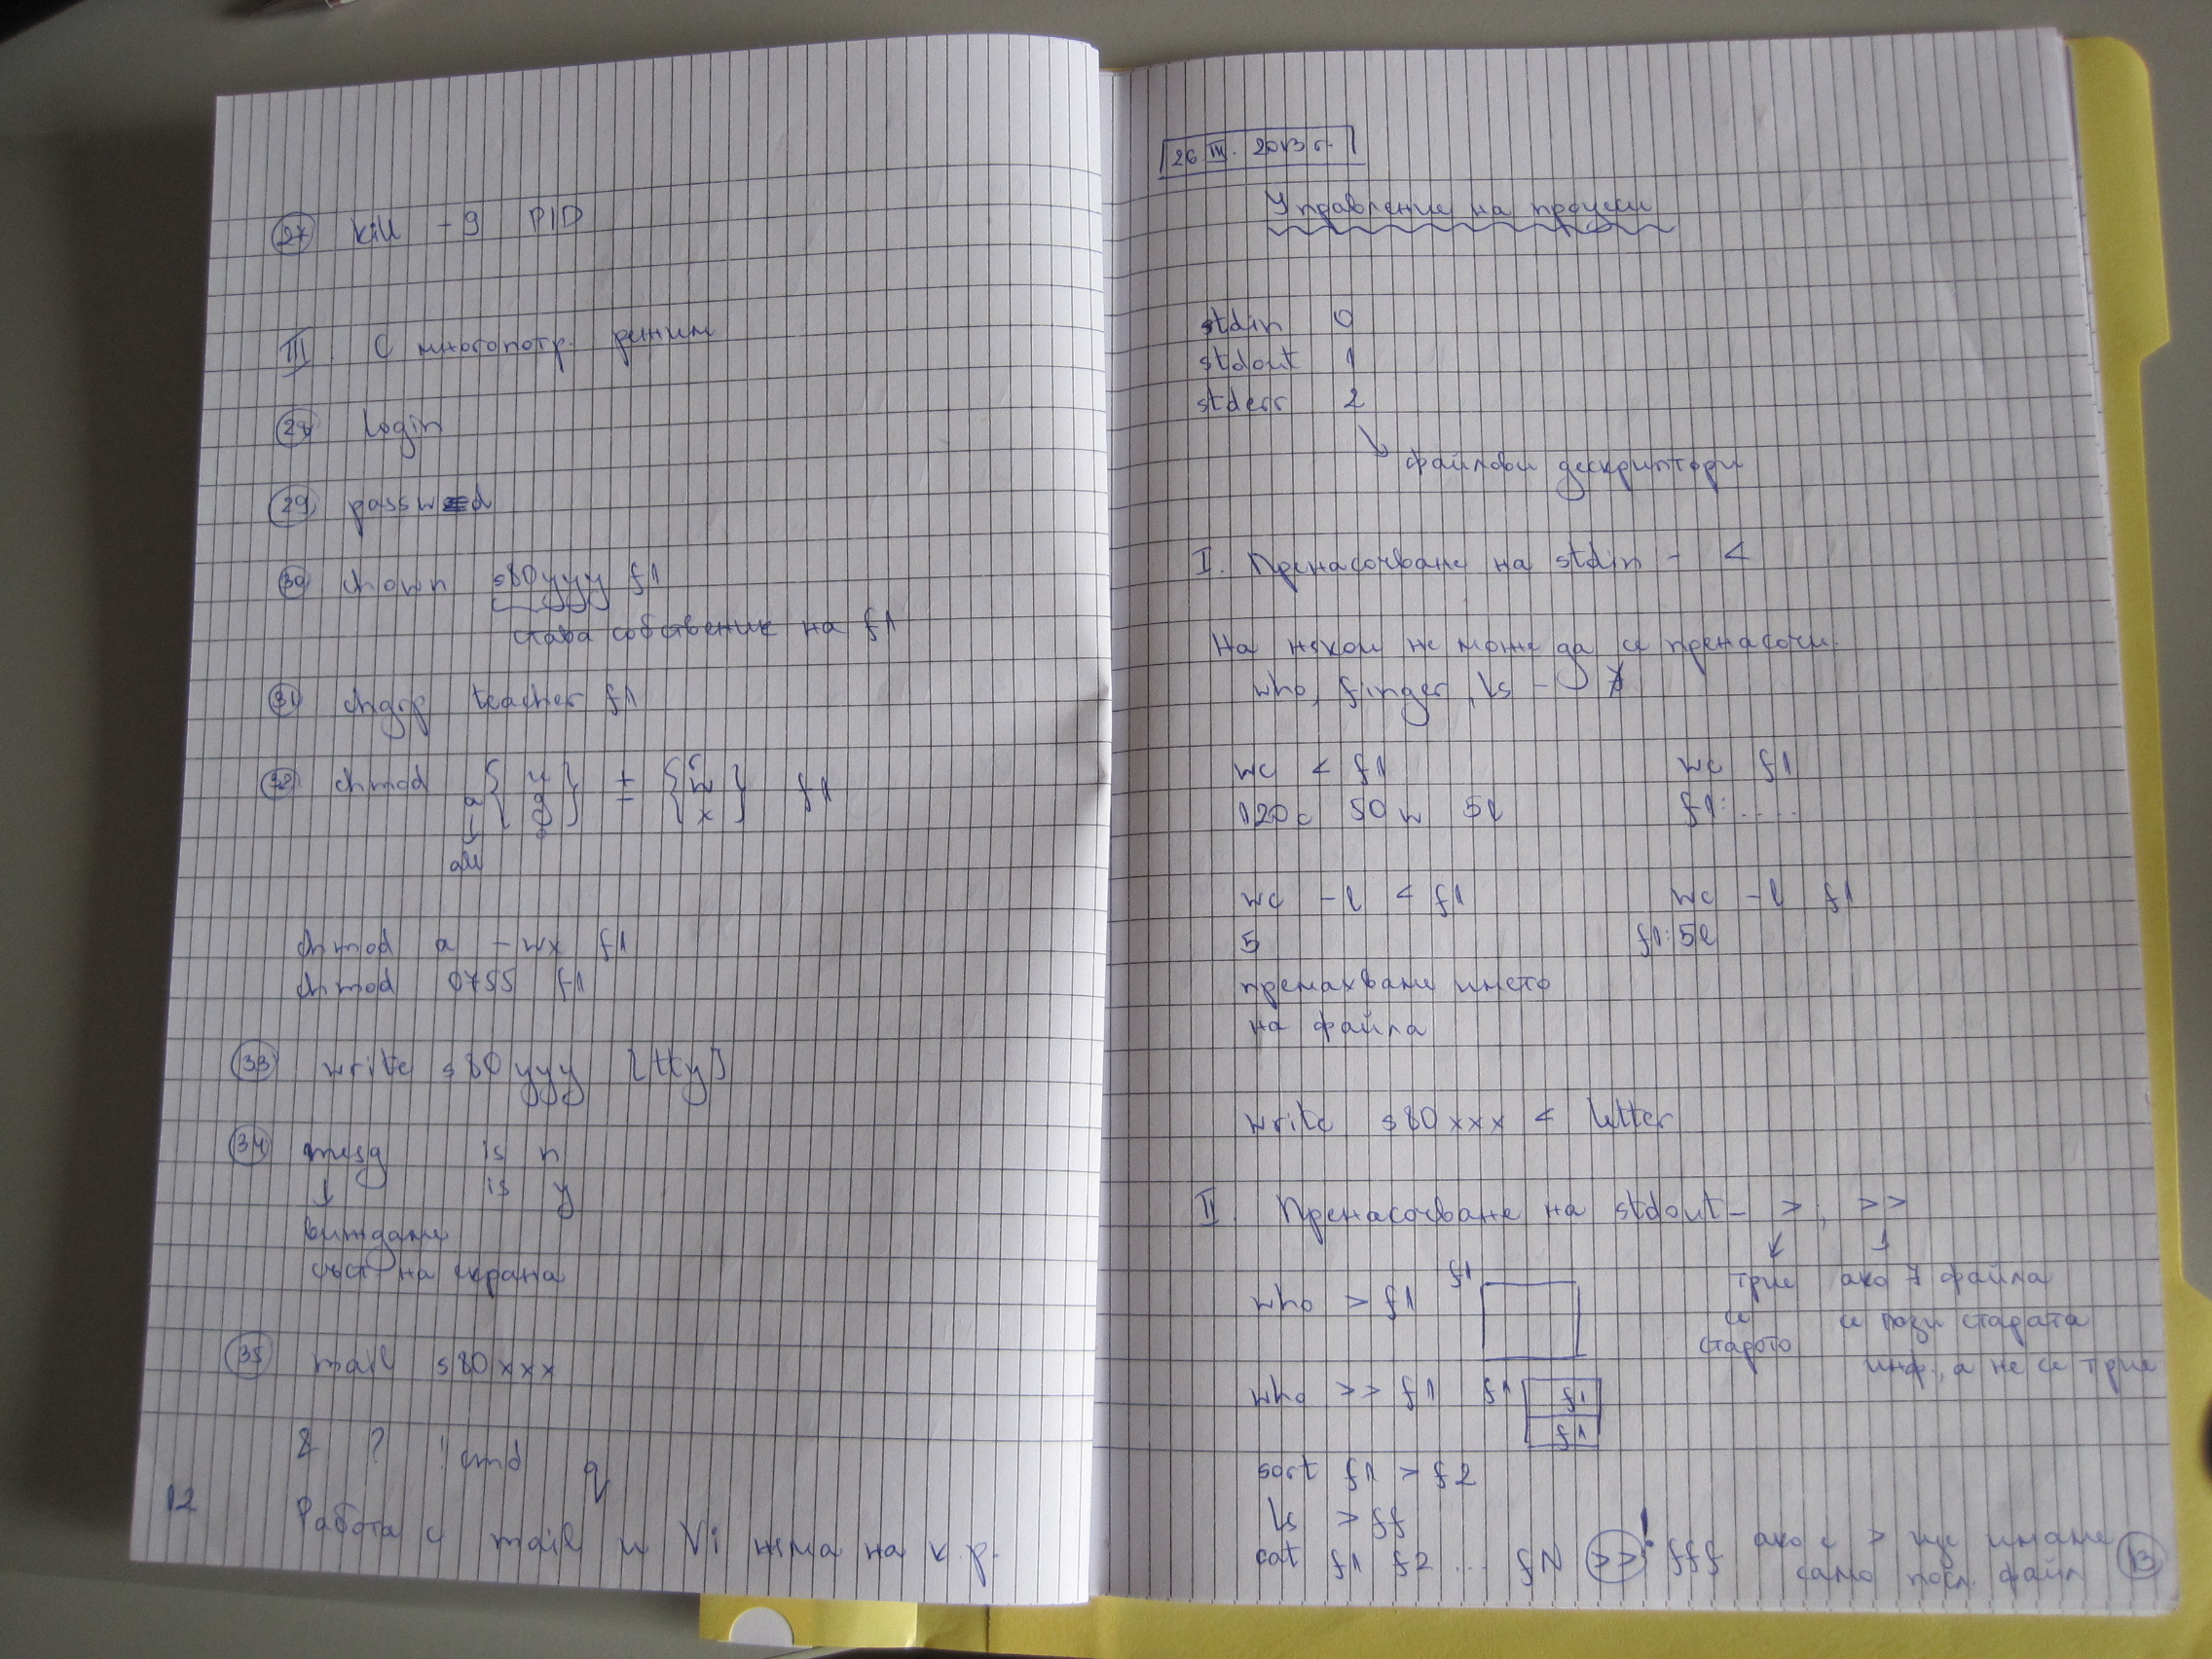 27 kill -9 PID
III. С многопотр. режим
28 login
29 passwd
30 chown s80yyy f1
става собственик на f1
31 chgrp teacher f1
32 chmod a { u g o } + - { r w x } f1
all
chmod a -wx f1
chmod 0755 f1
33 write s80yyy [tty]
34 mesg is n
is y
виждане
съот на екрана
35 mail s80xxx
& ? !cmd q
Работа с mail и Vi няма на к.р.
12
26.III.2013 г.
Управление на процеси
stdin 0
stdout 1
stderr 2
файлови дескриптори
I. Пренасочване на stdin - <
На някои не може да се пренасочи.
who, finger, ls -
wc < f1 wc f1
120c 50w 5l f1:....
wc -l < f1 wc -l f1
5 f1:5l
премахване името
на файла
write s80xxx < letter
II. Пренасочване на stdout - > ; >>
who > f1 f1
трие
се
старото
ако ∃ файла
се пази старата
инф., а не се трие
who >> f1 f1 f1
f1
sort f1 > f2
ls > ff
cat f1 f2 ... fN >> ! fff ако е > ще имаме
само посл. файл
13